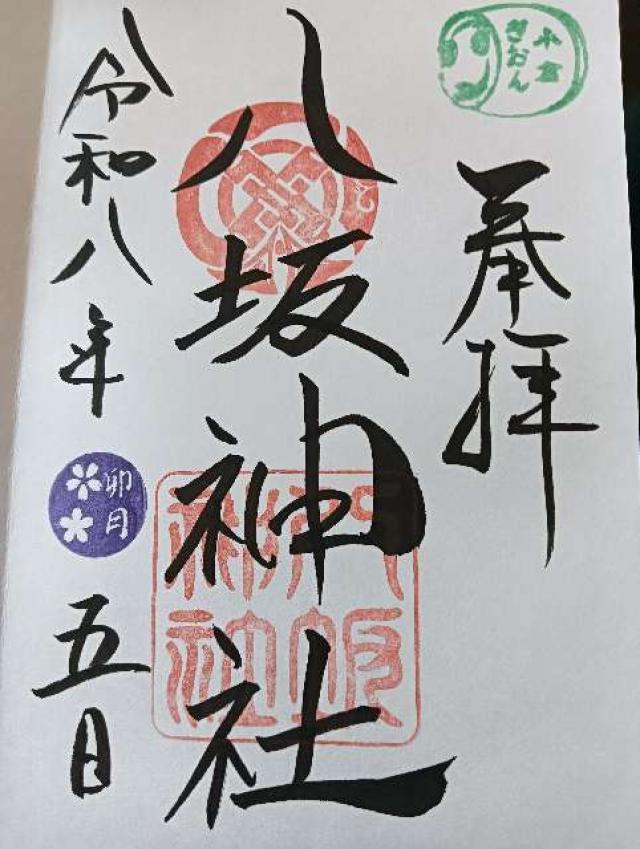 小倉
ぎおん
奉拝
八坂神社
八坂
神社
令和八年
卯月
五日